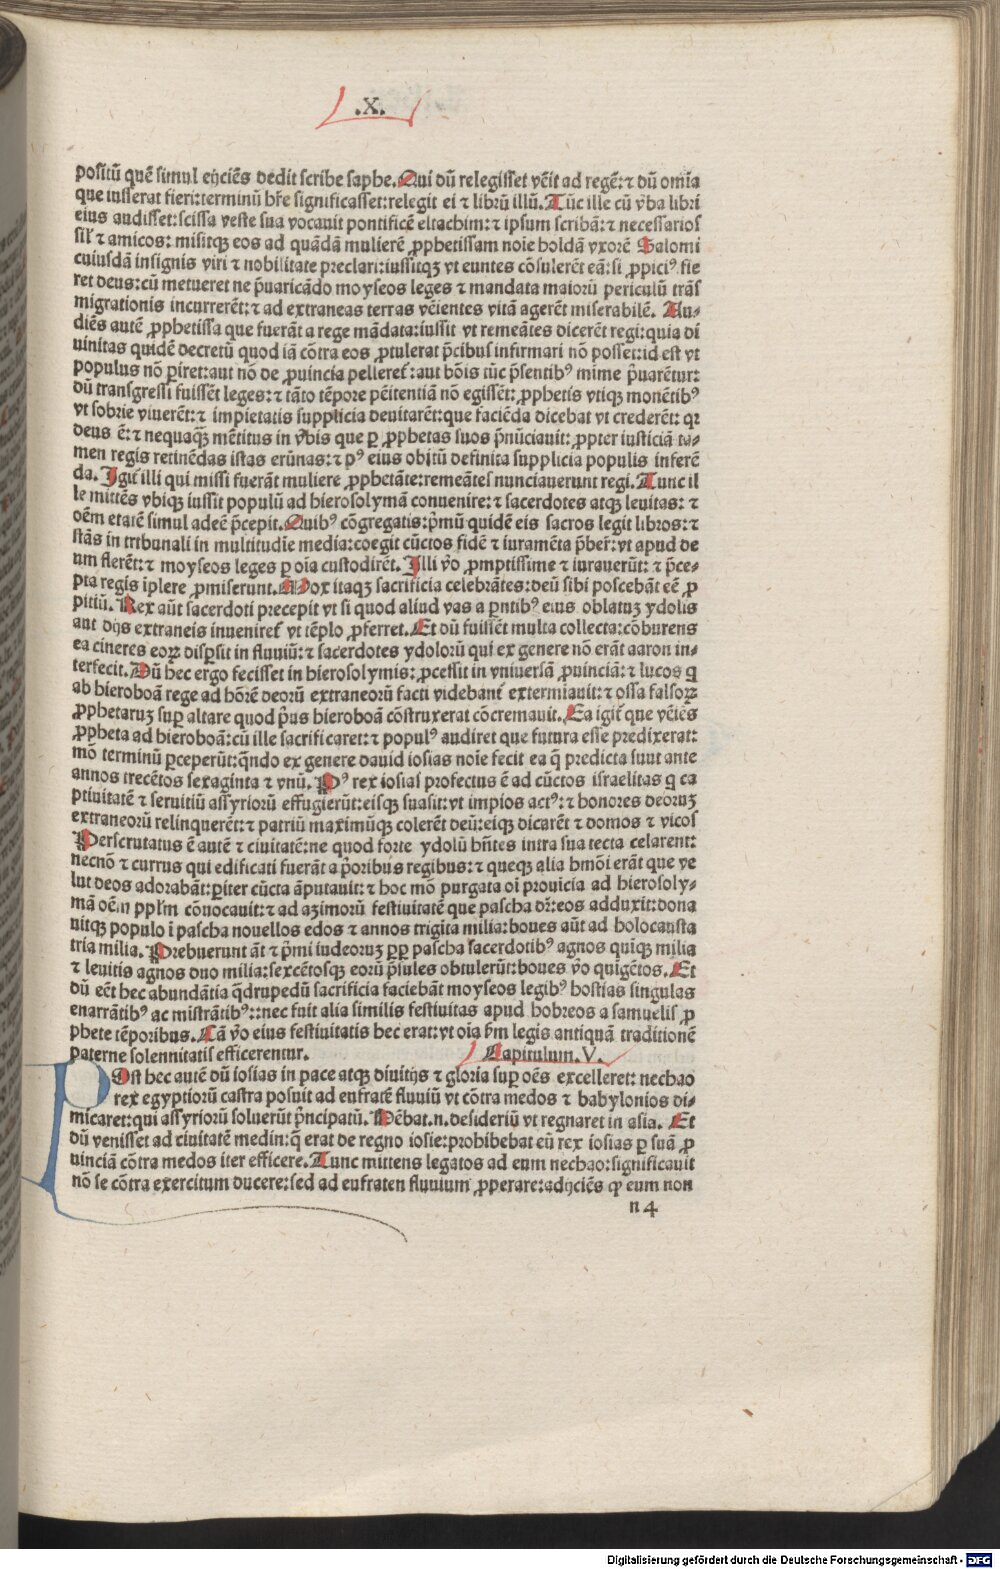 .X.
positū quē simul eijciēs dedit scribe saphe. Qui dū relegisset vēit ad regē: ⁊ dū omīa
que iusserat fieri: terminū hr̄e significasset: relegit ei ⁊ librū illū. Tūc ille cū v̄ba libri
eius audisset: scissa veste sua vocauit pontificē eliachim: ⁊ ipsum scribā: ⁊ necessarios
sil̄r ⁊ amicos: misitqꝫ eos ad quādā mulierē ꝓphetissam noīe holdā vxorē Salomi
cuiusdā insignis viri ⁊ nobilitate preclari: iussitqꝫ vt euntes cōsulerēt eā: si ꝓpiciꝰ fie
ret deus: cū metueret ne p̄uaricādo moyseos leges ⁊ mandata maiorū periculū trās
migrationis incurrerēt: ⁊ ad extraneas terras vēientes vitā agerēt miserabilē. Au-
diēs autē ꝓphetissa que fuerāt a rege mādata: iussit vt remeātes dicerēt regi: quia di
uinitas quidē decretū quod iā cōtra eos ꝓtulerat p̄cibus infirmari nō posset: id est vt
populus nō ꝑiret: aut nō de ꝓuincia pelleret̄: aut bōis tūc p̄sentibꝰ mīme p̄uarētur:
dū transgressi fuissēt leges: ⁊ tāto tēpore pēitentiā nō egissēt: ꝓphetis vtiqꝫ monētibꝰ
vt sobrie viuerēt: ⁊ impietatis supplicia deuitarēt: que faciēda dicebat vt crederēt: qꝛ
deus ē: ⁊ nequaqꝫ̄ mētitus in v̄bis que ꝑ ꝓphetas suos p̄nūciauit: ꝓpter iusticiā ta-
men regis retinēdas istas erūnas: ⁊ pꝰ eius obitū definita supplicia populis inferē
da. Igit̄ illi qui missi fuerāt muliere ꝓphetāte: remeātes nunciauerunt regi. Tunc il
le mittēs vbiqꝫ iussit populū ad hierosolymā conuenire: ⁊ sacerdotes atqꝫ leuitas: ⁊
oēm etatē simul adeē p̄cepit. Quibꝰ cōgregatis: p̄mū quidē eis sacros legit libros: ⁊
stās in tribunali in multitudīe media: coegit cūctos fidē ⁊ iuramēta p̄ber̄: vt apud de
um fierēt: ⁊ moyseos leges ꝑ oīa custodirēt. Illi v̄o ꝓmptissime ⁊ iurauerūt: ⁊ p̄ce-
pta regis īplere ꝓmiserunt. Mox itaqꝫ sacrificia celebrātes: deū sibi poscebāt eē ꝓ
pitiū. Rex aūt sacerdoti precepit vt si quod aliud vas a ꝑntibꝰ eius oblatuꝫ ydolis
aut dijs extraneis inueniret̄ vt tēplo ꝓferret. Et dū fuissēt multa collecta: cōburens
ea cineres eoꝝ disꝑsit in fluuiū: ⁊ sacerdotes ydolorū qui ex genere nō erāt aaron in-
terfecit. Dū hec ergo fecisset in hierosolymis: ꝓcessit in vniuersā ꝓuinciā: ⁊ lucos q
ab hieroboā rege ad hōrē deorū extraneorū facti videbant̄ extermīauit: ⁊ ossa falsoꝝ
ꝓphetaruꝫ suꝑ altare quod p̄us hieroboā cōstruxerat cōcremauit. Ea igit̄ que vēiēs
ꝓpheta ad hieroboā: cū ille sacrificaret: ⁊ populꝰ audiret que futura esse predixerat:
mō terminū ꝑceperūt: qn̄do ex genere dauid iosias noīe fecit ea q̄ predicta sunt ante
annos trecētos sexaginta ⁊ vnū. Pꝰ rex iosias profectus ē ad cūctos israelitas q ca
ptiuitatē ⁊ seruitiū assyriorū effugierūt: eisqꝫ suasit: vt impios actꝰ: ⁊ honores deoruꝫ
extraneorū relinquerēt: ⁊ patriū maximūqꝫ colerēt deū: eiqꝫ dicarēt ⁊ domos ⁊ vicos
Perscrutatus ē autē ⁊ ciuitatē: ne quod forte ydolū hn̄tes intra sua tecta celarent:
necnō ⁊ currus qui edificati fuerāt a p̄oribus regibus: ⁊ queqꝫ alia hmōi erāt que ve
lut deos adorabāt: ꝑiter cūcta āputauit: ⁊ hoc mō purgata oī prouīcia ad hierosoly-
mā oēm pplm̄ cōuocauit: ⁊ ad azimorū festiuitatē que pascha dr̄: eos adduxit: dona
uitqꝫ populo ī pascha nouellos edos ⁊ annos trigīta milia: boues aūt ad holocausta
tria milia. Prebuerunt āt ⁊ p̄mi iudeoruꝫ ꝑp pascha sacerdotibꝰ agnos quīqꝫ milia
⁊ leuitis agnos duo milia: sexcētosqꝫ eorū p̄sules obtulerūt: boues v̄o quīgētos. Et
dū eēt hec abundātia q̄drupedū sacrificia faciebāt moyseos legibꝰ hostias singulas
enarrātibꝰ ac mīstrātibꝰ:: nec fuit alia similis festiuitas apud hobreos a samuelis ꝓ
phete tēporibus. Cā v̄o eius festiuitatis hec erat: vt oīa ẜm legis antiquā traditionē
paterne solennitatis efficerentur. Capitulum. V.
POst hec autē dū iosias in pace atqꝫ diuitijs ⁊ gloria suꝑ oēs excelleret: nechao
rex egyptiorū castra posuit ad eufratē fluuiū vt cōtra medos ⁊ babylonios di-
micaret: qui assyriorū soluerūt p̄ncipatū. Hēbat. n. desideriū vt regnaret in asia. Et
dū venisset ad ciuitatē medin: q̄ erat de regno iosie: prohibebat eū rex iosias ꝑ suā ꝓ
uinciā cōtra medos iter efficere. Tunc mittens legatos ad eum nechao: significauit
nō se cōtra exercitum ducere: sed ad eufraten fluuium ꝓperare: adijciēs qꝫ eum non
n 4
Digitalisierung gefördert durch die Deutsche Forschungsgemeinschaft - DFG